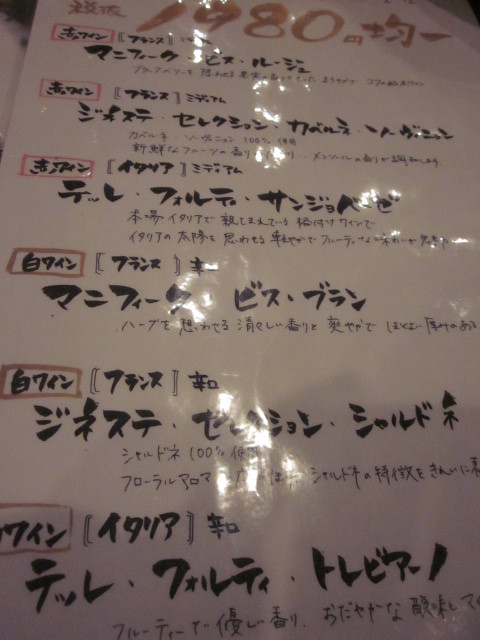 税抜 1980円均一
赤ワイン 〖フランス〗
マニフィーク・ビス・ルージュ
赤ワイン 〖フランス〗 ミディアム
ジネステ・セレクション・カベルネ・ソーヴィニヨン
カベルネ・ソーヴィニヨン 100% 使用
新鮮なフルーツの香り
赤ワイン 〖イタリア〗 ミディアム
テッレ・フォルティ・サンジョベーゼ
本場イタリアで親しまれている格付けワインで
イタリアの太陽を思わせる軽やかでフルーティな味わい
白ワイン 〖フランス〗 辛口
マニフィーク ビス・ブラン
ハーブを思わせる清々しい香りと爽やかでほどよい厚みのある
白ワイン 〖フランス〗 辛口
ジネステ・セレクション・シャルドネ
シャルドネ 100% 使用
フローラルアロマ シャルドネの特徴をきれいに
白ワイン 〖イタリア〗 辛口
テッレ・フォルティ・トレビアーノ
フルーティーで優しい香り、おだやかな酸味